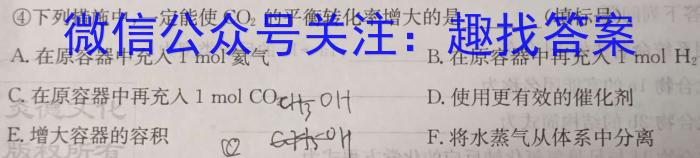 ④下列措施中,一定能使 CO₂ 的平衡转化率增大的是 (填标号)
微信公众号关注:趣找答案
A. 在原容器中充入 1 mol 氦气
B. 在原容器中再充入 1 mol H₂
C. 在原容器中再充入 1 mol CO₂
CH₃OH
D. 使用更有效的催化剂
E. 增大容器的容积
② CH₃OH
F. 将水蒸气从体系中分离
版权所有